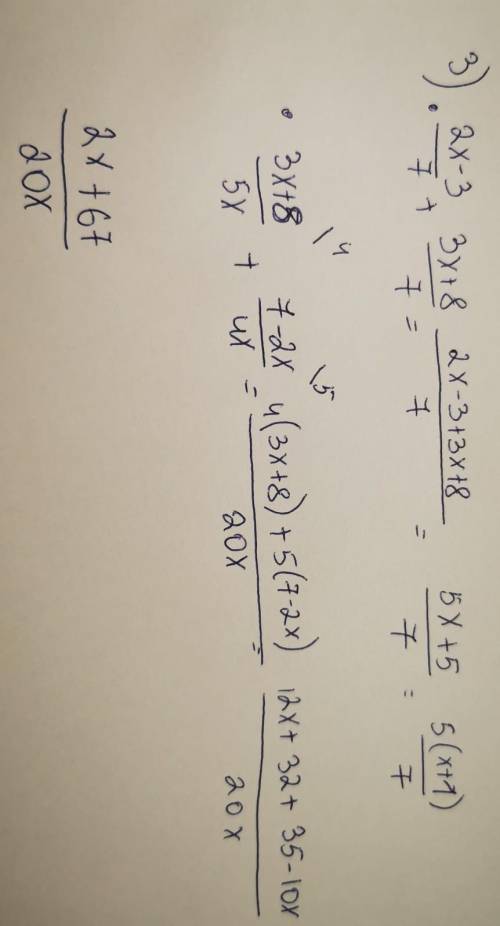 3) • (2x-3)/7 + (3x+8)/7 = (2x-3+3x+8)/7 = (5x+5)/7 = 5(x+1)/7
• (3x+8)/5x \4 + (7-2x)/4x \5 = (4(3x+8)+5(7-2x))/20x = (12x+32+35-10x)/20x
(2x+67)/20x